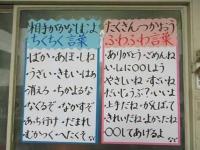 相手がかなしむよ
ちくちく言葉
・ばか・あほ・しね
・うざい・きもい・はぁ
・消えろ・ちかよるな
・なぐるぞ・なかすぞ
・あっち行け・だまれ
・むかつく・へたくそ
など
たくさんつかおう
ふわふわ言葉
・ありがとう・ごめんね
・いっしょに〇〇しよう
・やさしいね・すごいね
・だいじょうぶ？・いいよ
・上手だね・がんばって
・きれいだね・よかったね
・〇〇してあげるよ
など